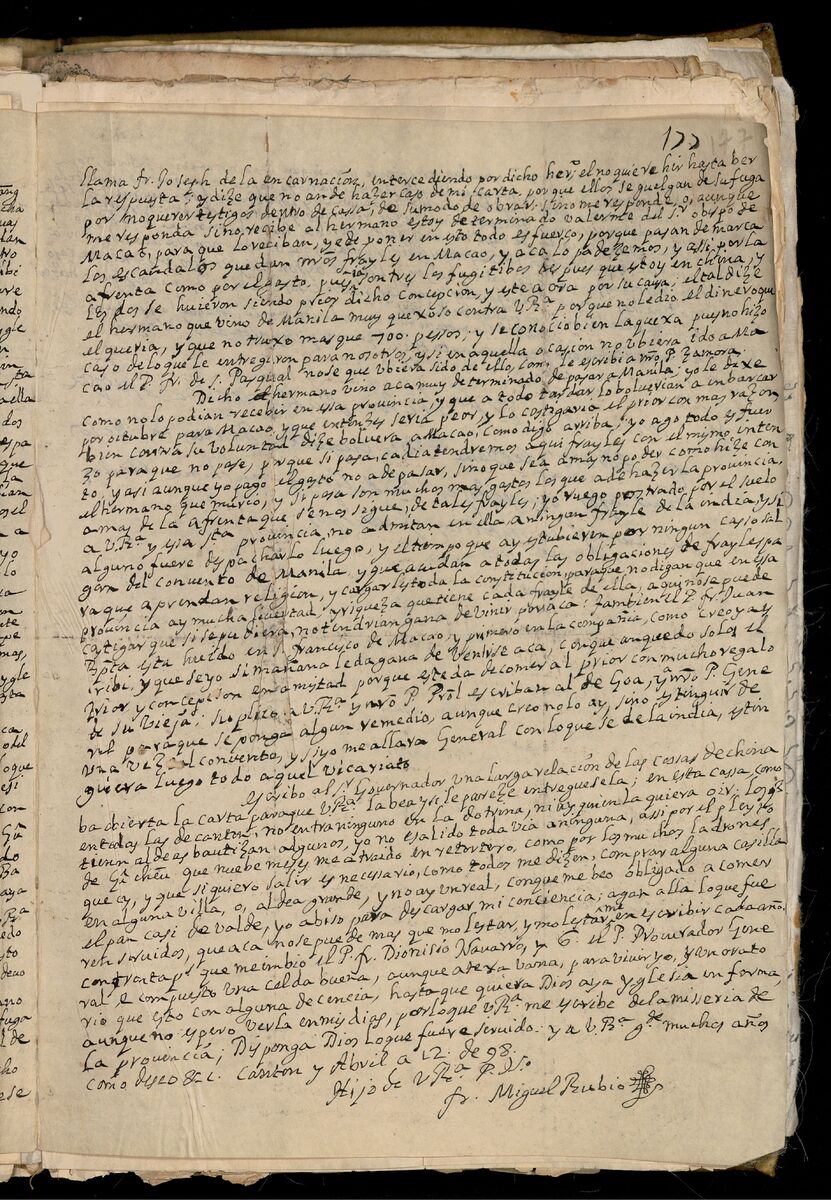 177
llama fr. Joseph de la encarnacion, intercediendo por dicho herº, el no quiere hir hasta ber
la respuesta: y dize que no an de hazer caso de mi carta, porque ellos se guelgan de su fuga
por no querer testigos dentro de cassa, de su modo de obrar: si no me responde, o, aunque
me responda si no recibe al hermano estoy determinado valerme del Sr. obispo de
Macao, para que lo reciban, y e de poner en esto todo esfuerço, porque pasan de marca
los escandalos que dan nros frayles en Macao, y aca lo padezemos, y asi por la
afrenta como por el gasto, pues con tres los fugitibos despues que estoy en china, y
los dos se huieron siendo prior dicho Concepcion, y este aora por su causa; el tal dize
el hermano que vino de Manila muy quexoso contra VRª porque no le dio el dinero que
el queria, y que no truxo mas que 700. pessos; y se conocio bien la quexa pues no hizo
caso de lo que le entregaron para nosotros, y si en aquella ocasion no ubiera ido a Ma
cao el P. fr. de S. Pasqual no se que ubiera sido de ello, como le escribi a nro P. Zamora.
Dicho hermano vino aca muy determinado de pasar a Manila; yo le dixe
como no lo podian recebir en essa provincia, y que a todo tardar lo bolverian a enbarcar
por octubre para Macao, y que entonzes seria peor y lo castigaria el prior con mas razon,
bien contra su voluntad dize bolvera a Macao, como digo arriba; yo ago todo esfuer
zo para que no pase, porque si pasa, cada dia tendremos aqui frayles con el mismo inten
to, y asi aunque yo pago el gasto no a de pasar, sino que sea a mas no poder como hize con
el hermano que murio, y si pasa son muchos mas gastos los que a de hazer la provincia,
a mas de la afrenta que se nos sigue, de tales frayles; yo ruego postrado por el suelo
a VRª y essa sta provincia, no admitan en ella a ningun frayle de la india, y si
alguno fuere despacharlo luego, y el tiempo que ay estubieren por ningun casso sal
gan del convento de Manila, y que acudan a todas las obligaciones de frayles pa
ra que aprendan religion, y cargarles toda la constitucion, para que no digan que en essa
provincia ay mucha livertad, y riqueza que tiene cada frayle de ella, aqui no se puede
castigar que si se pudiera, no tendrian gana de venir por aca: tambien el P. fr. Juan
Bpta esta huido en S. francisco de Macao y primero en la compañia, como creo ya es
cribi, y que se yo si mañana le da gana de venirse aca, con que an quedo solos el
Prior y concepcion en amistad porque este da de comer al prior con mucho regalo
de su vieja: suplico a VRª y nro P. Prol escriban al de Goa, y a nro P. Gene
ral para que se ponga algun remedio, aunque creo no lo ay, sino estinguir de
una vez al convento, y si yo me allara General con lo que se de la india, estin
guiera luego todo aquel vicariato
escribo al Sr. Governador una larga relacion de las cossas de china
ba abierta la carta para que VRª la bea y si le pareze entreguesela; en esta cassa, como
en todas las de canton, no entra ninguno en la dotrina, ni ay quien la quiera oir. los q
tienen aldeas bautizan algunos, yo no e salido toda via a ninguna, assi por el pleyto
de Gª cheu que nuebe meses me a traido en retortero, como por los muchos ladrones
que ay, y que si quiero salir es necessario, como todos me dizen, comprar alguna casilla
en alguna villa, o, aldea grande, y no ay un real, conque me beo obligado a comer
el pan casi de valde, yo abiso para descargar mi conciencia; agan alla lo que fue
ren servidos, que aca no se puede mas que molestar, y molestarme en escribir cada año.
con treinta ps que me imbio el P. fr. Dionisio Navarro, y 6. el P. Procurador Gene
ral e compuesto una celda buena, aunque ateravana, para vivir yo, y un orato
rio que esto con alguna decencia, hasta que quiera Dios aya yglesia en forma,
aunque no espero verla en mis dias, por lo que VRª me escribe de la miseria de
la provincia; Disponga Dios lo que fuere servido. y a V. Rª gde muchos años
como deseo &c. Canton y Abril a 12. de 98.
Hijo de VRª P. Q.S.
fr. Miguel Rubio